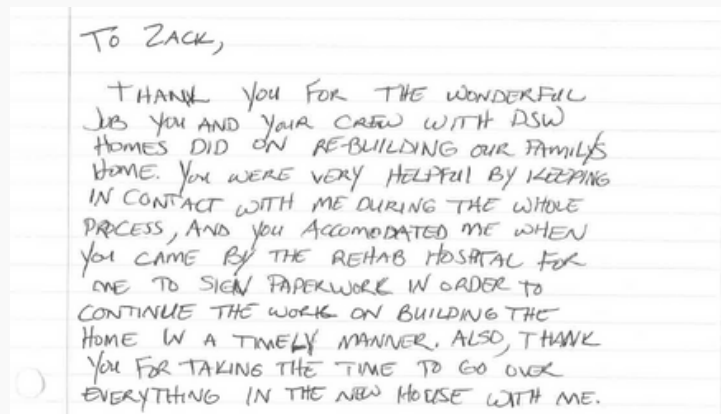 To ZACK,
THANK YOU FOR THE WONDERFUL
JOB YOU AND YOUR CREW WITH DSW
HOMES DID ON RE-BUILDING OUR FAMILY'S
HOME. YOU WERE VERY HELPFUL BY KEEPING
IN CONTACT WITH ME DURING THE WHOLE
PROCESS, AND YOU ACCOMODATED ME WHEN
YOU CAME BY THE REHAB HOSPITAL FOR
ME TO SIGN PAPERWORK IN ORDER TO
CONTINUE THE WORK ON BUILDING THE
HOME IN A TIMELY MANNER. ALSO, THANK
YOU FOR TAKING THE TIME TO GO OVER
EVERYTHING IN THE NEW HOUSE WITH ME.